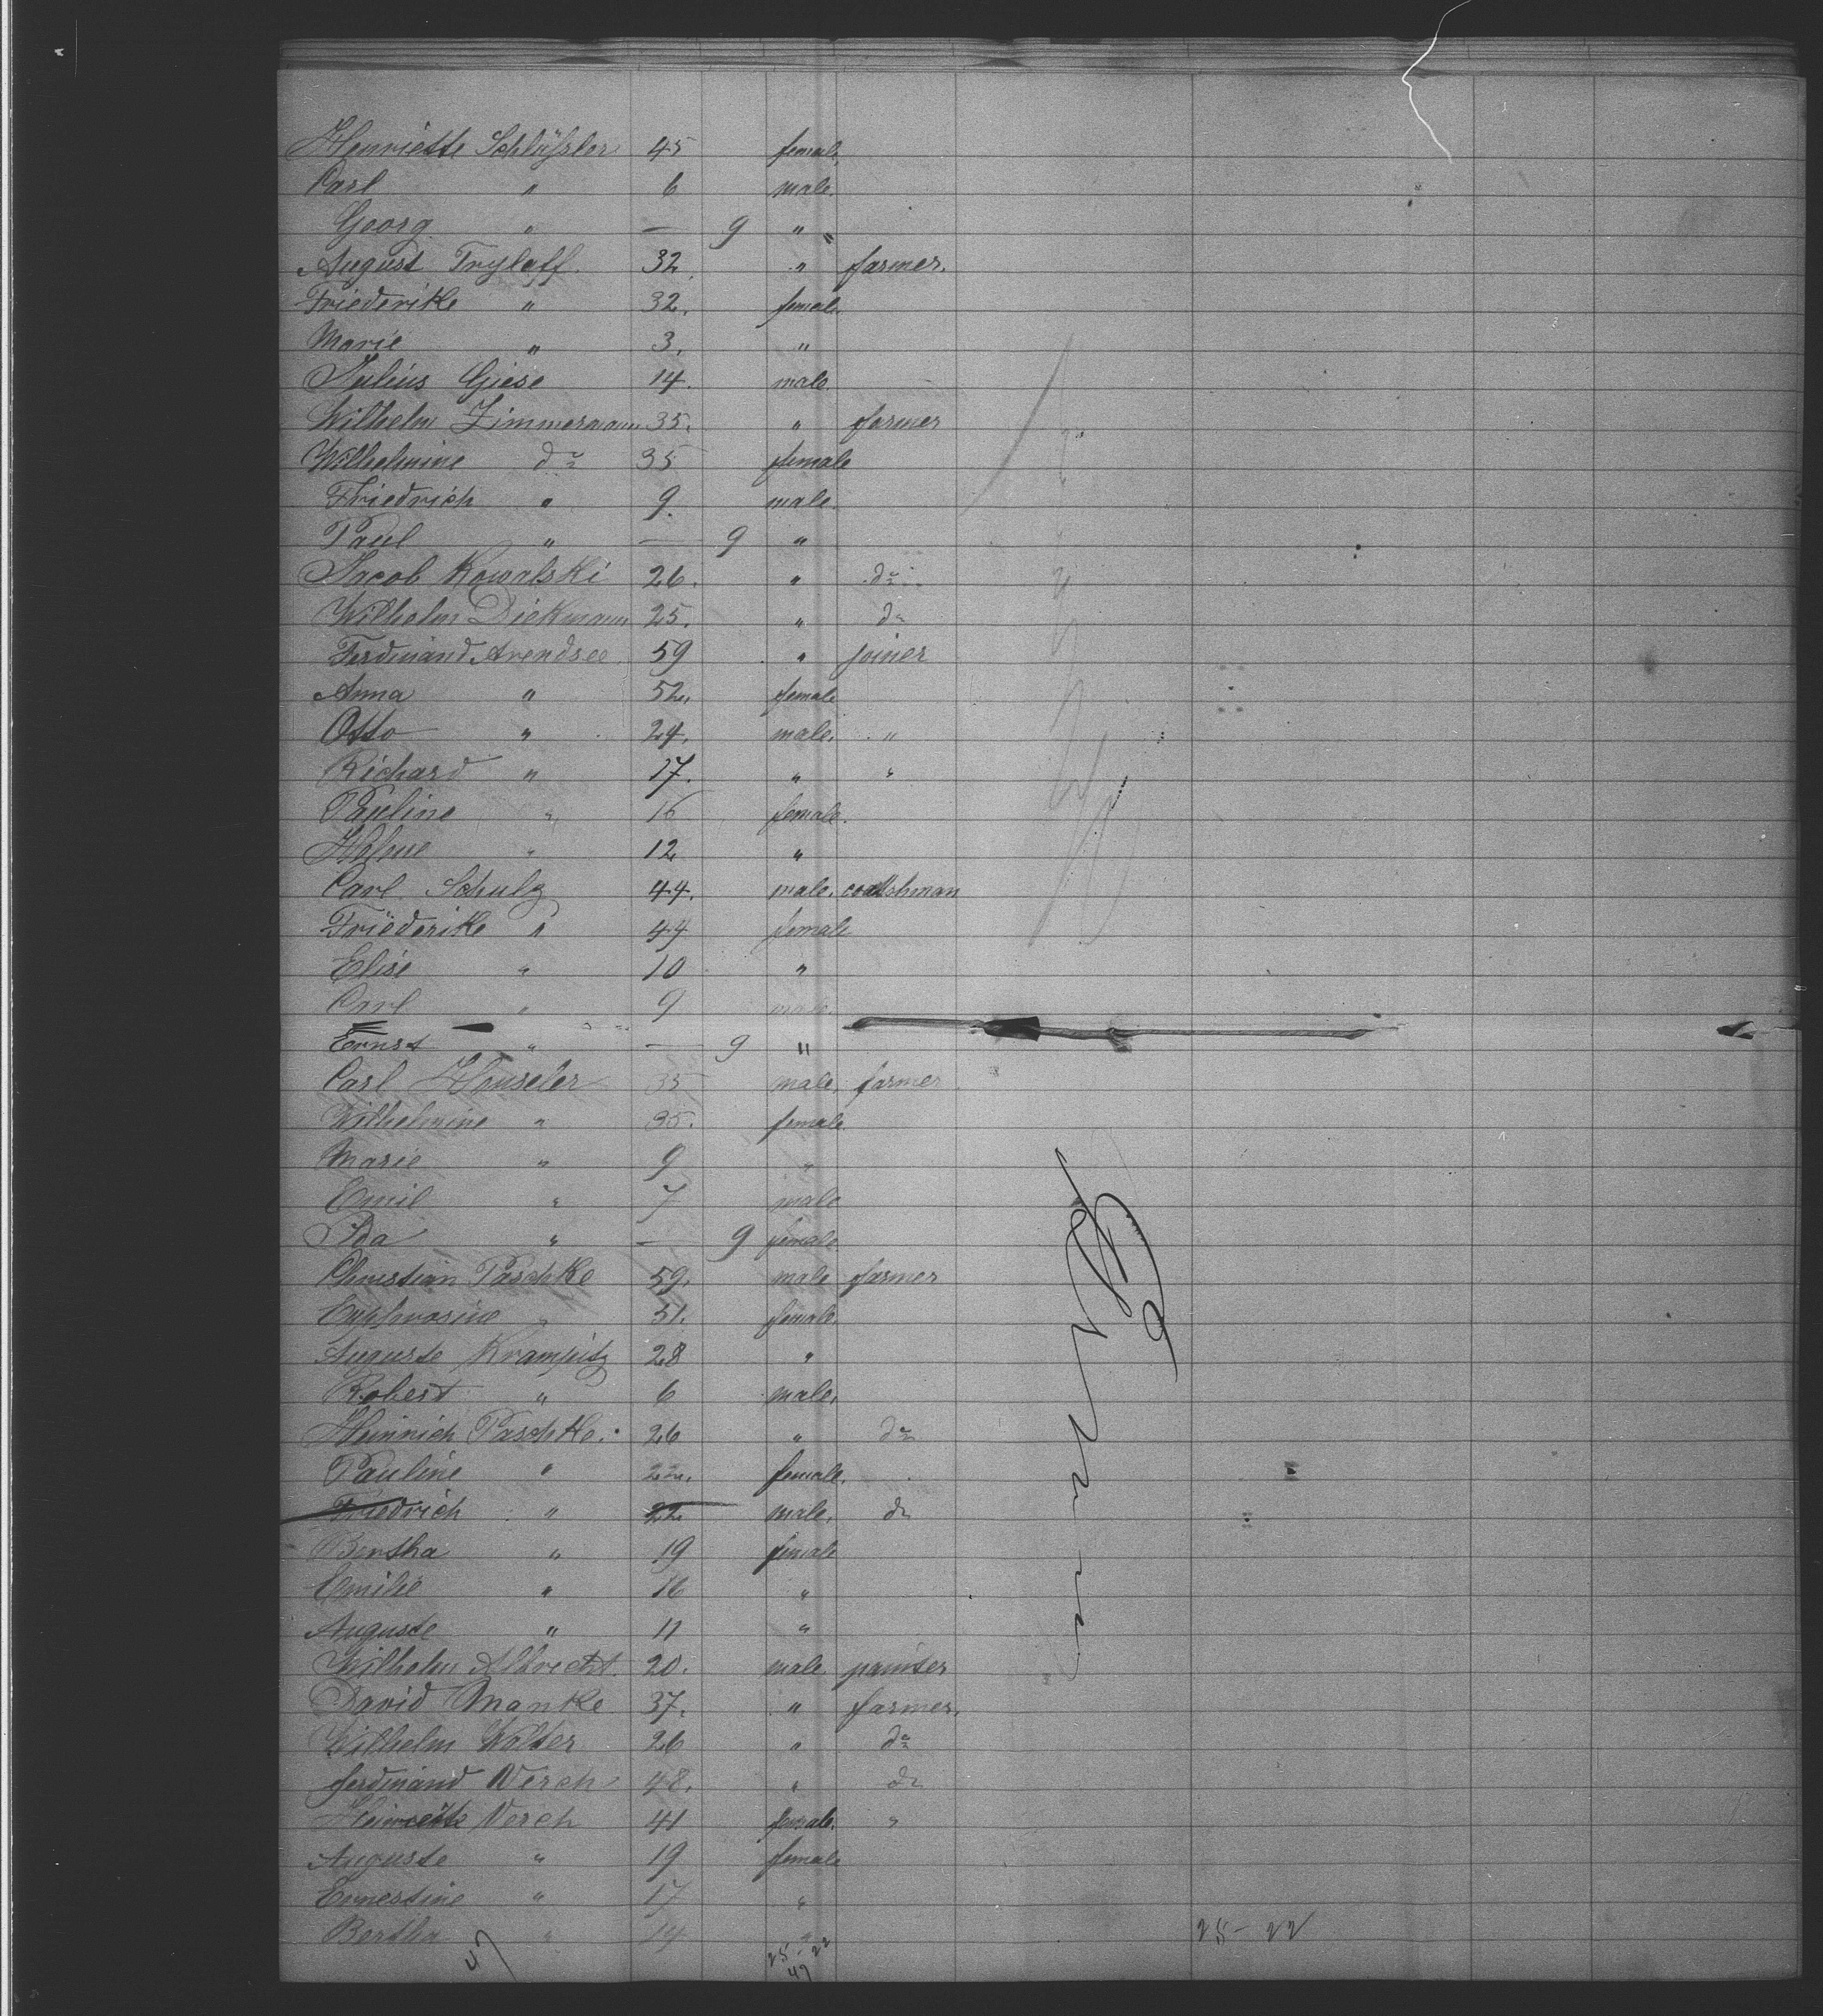 Henriette Schlüßler 45 female
Carl " 6 male.
Georg " — 9 "
August Tryloff. 32. " farmer.
Friederike " 32. female.
Marie " 3. "
Julius Giese 14. male.
Wilhelm Zimmermann 35. " farmer
Wilhelmine do 35 female
Friedrich " 9. male.
Paul " — 9 "
Jacob Kowalski 26. " do
Wilhelm Diekmann 25. " do
Ferdinand Arendsee 59 " joiner
Anna " 52. female
Otto " 24. male. "
Richard " 17. " "
Pauline " 16 female.
" 12 "
Carl Schulz 44. male. coatshman
Friederike " 44 female
Elise " 10 "
Carl " 9 male.
Ernst " — 9 "
Carl Houseler 35 male, farmer
Wilhelmine " 35. female.
Marie " 9 "
Emil " 7 male
Ida " — 9 female
Christian Paschke 59. male farmer
" 51. female.
Auguste Krampitz 28 "
Robert " 6 male.
Heinrich Paschke. 26 " do
Pauline " 22. female.
Friedrich " 22 male. do
Bertha " 19 female
Emilie " 16 "
Auguste " 11 "
Wilhelm Albrecht. 20. male painter
David Manke 37. " farmer.
Wilhelm Wolter 26 " do
ferdinand Verch 48. " do
Verch 41 female. "
Auguste " 19 female
Ernestine " 17 "
Bertha " 14 "
25-22
25-22
47
47